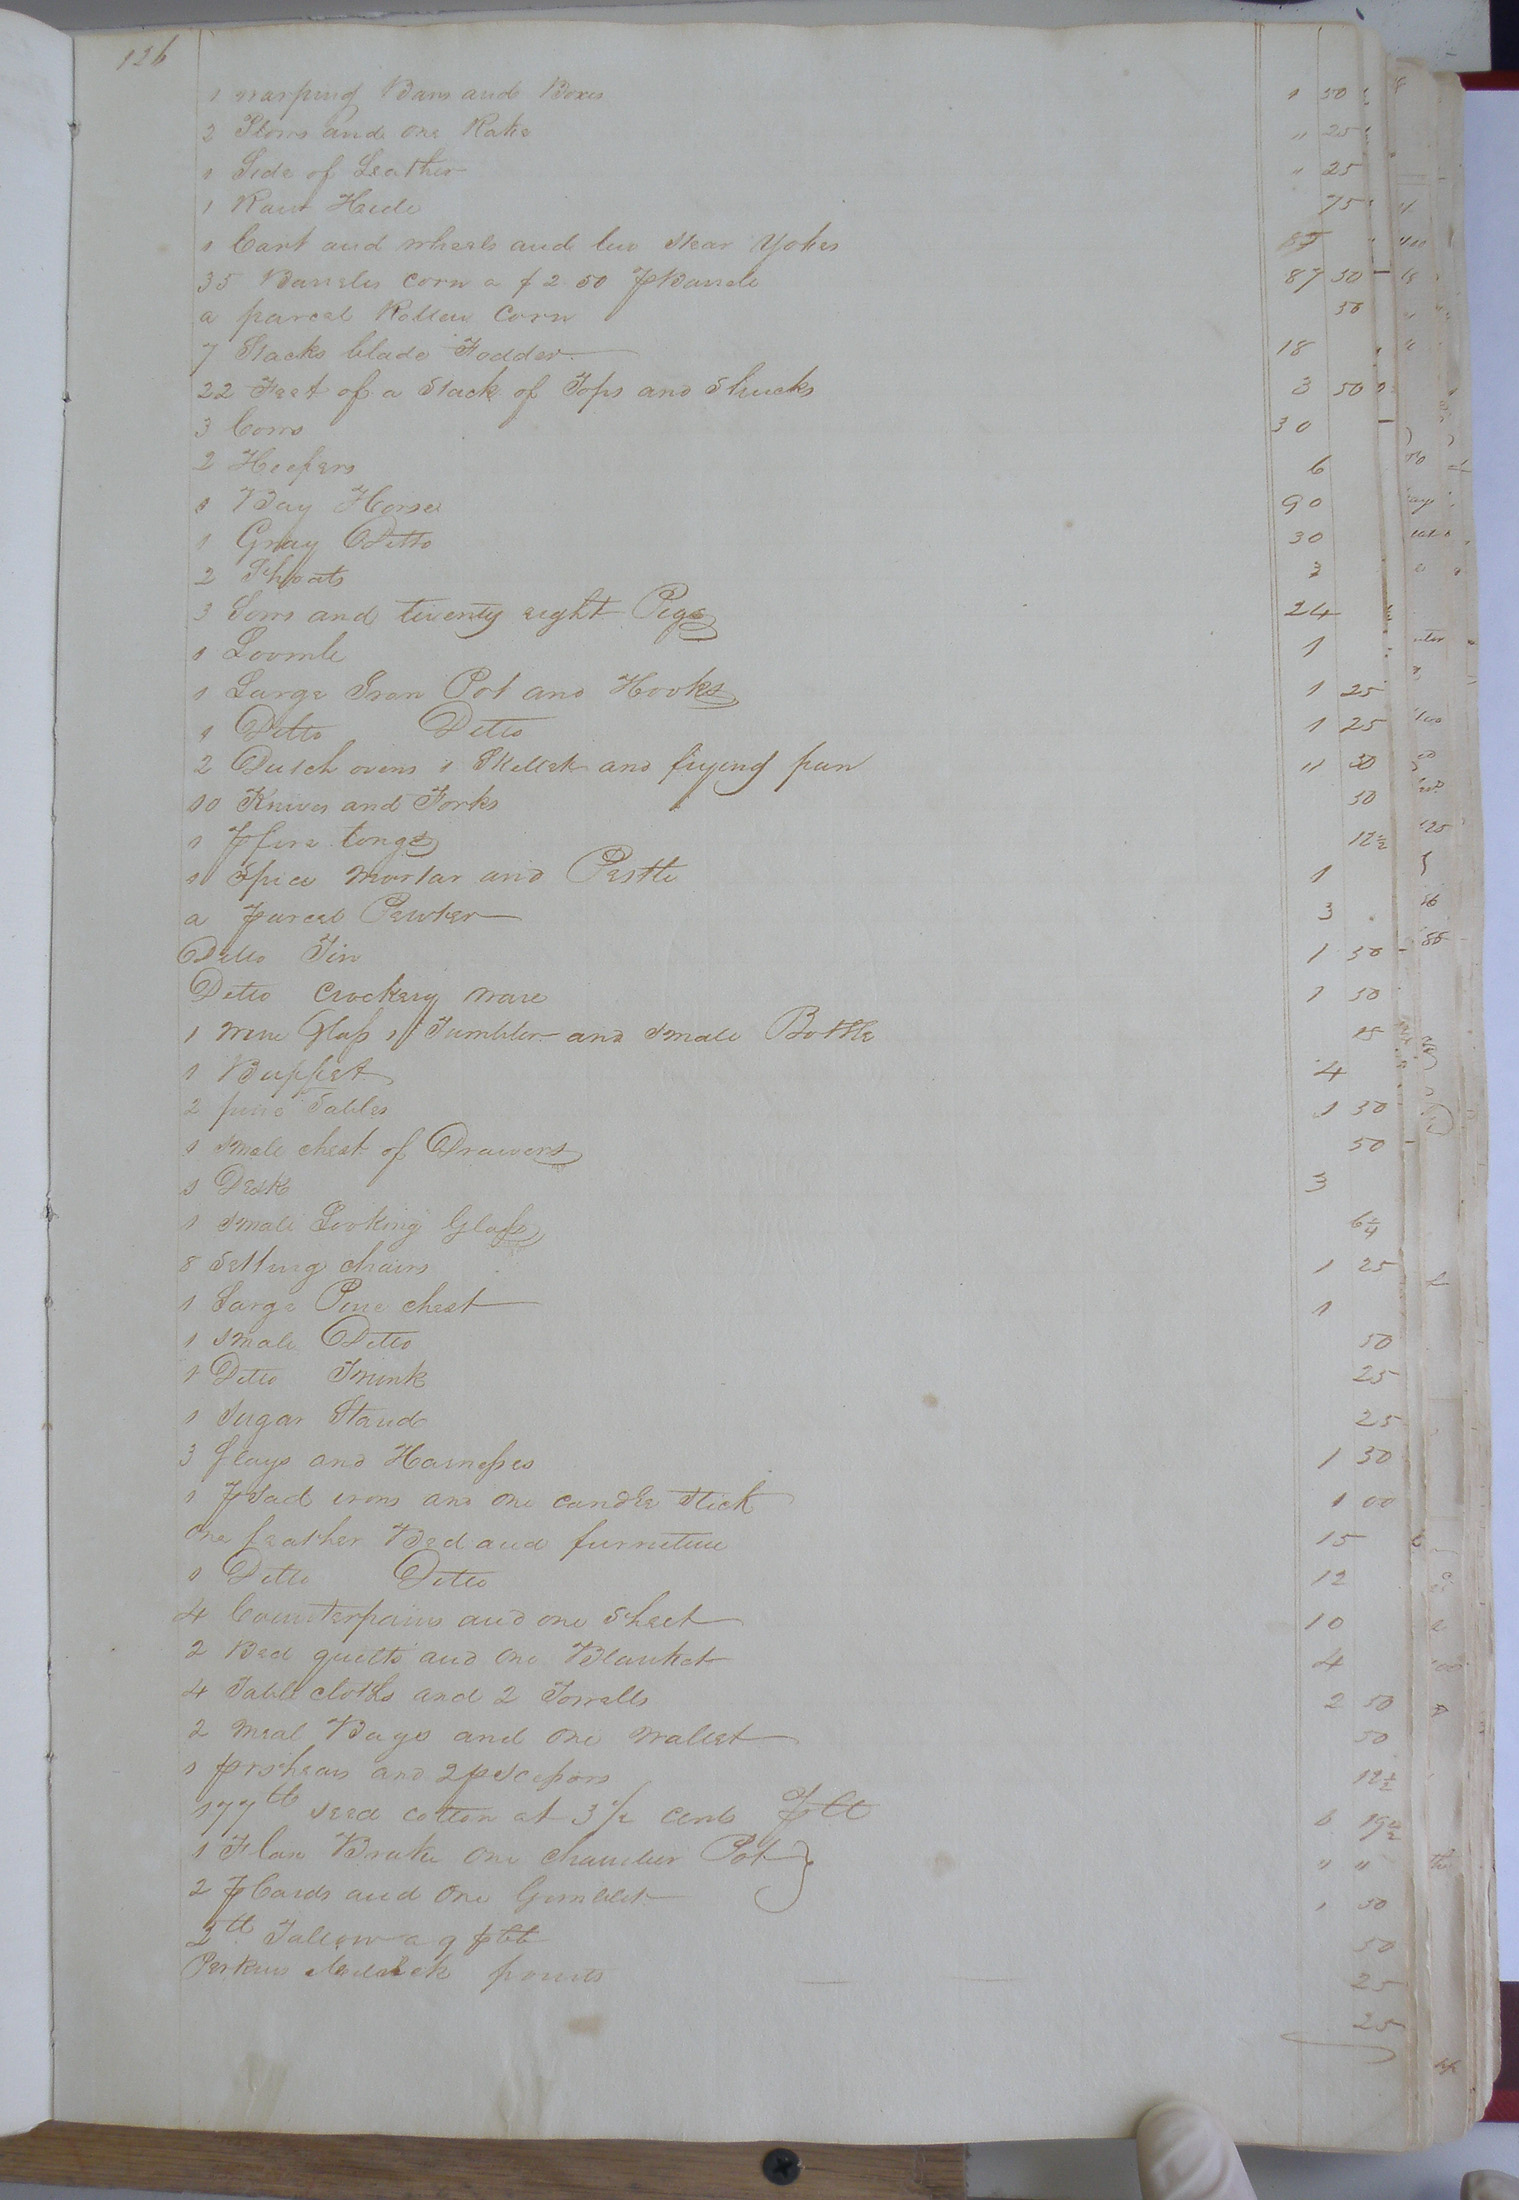 126
1 warping Bars and Boxes 1 50
2 Plows and one Rake " 25
1 Side of Leather " 25
1 Raw Hide 75
1 Cart and wheels and two Stear Yokes
35 Barrels corn a $ 2 50 Barrele 87 50
a parcel Rotten Corn 50
7 Stacks blade Fodder 18
22 Feet of a Stack of Tops and Shucks 3 50
3 Cows 30
2 Heefers 6
1 Bay Horse 90
1 Gray Ditto 30
2 Shoats 3
3 Sows and twenty eight Pigs 24
1 Loomb 1
1 Large Iron Pot and Hooks 1 25
1 Ditto Ditto 1 25
2 Dutch ovens 1 Skellet and frying pan " 50
10 Knives and Forks 50
1 fire tongs 12 1/2
1 Spice mortar and Pestle 1
a parcel Pewter 3
Ditto Tin 1 50
Ditto Crockery ware 1 50
1 wine Glass 1 Tumbler and smale Bottle
1 Buffet 4
2 pine Tables 1 50
1 smale chest of Drawers 50
1 Desk 3
1 smale Looking Glass 6 1/4
8 Setting chairs 1 25
1 Large Pine chest 1
1 smale Ditto 50
1 Ditto Trunk 25
1 Sugar Stand 25
3 Slays and Harnesses 1 50
1 p Sad irons and one candle Stick 1 00
One feather Bed and furneture 15
1 Ditto Ditto 12
4 Counterpains and one Sheet 10
2 Bed quilts and one Blanket 4
4 Table cloths and 2 Towells 2 50
2 meal Bags and one wallet 50
1 pr shears and 2 p Scissors 12 1/2
177 lb seed cotton at 3 1/2 cents p lb 6 19 1/2
1 Flax Brake one chamber Pot " "
2 p Cards and one Gimblet 50
lb Tallow a 9 p lb 50
Perkins 25
25